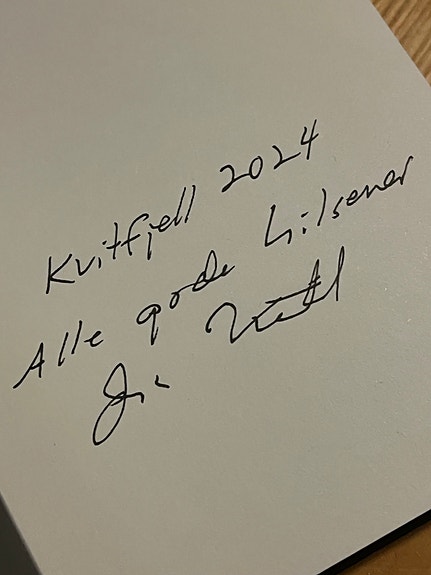 Kvitfjell 2024
Alle gode hilsener